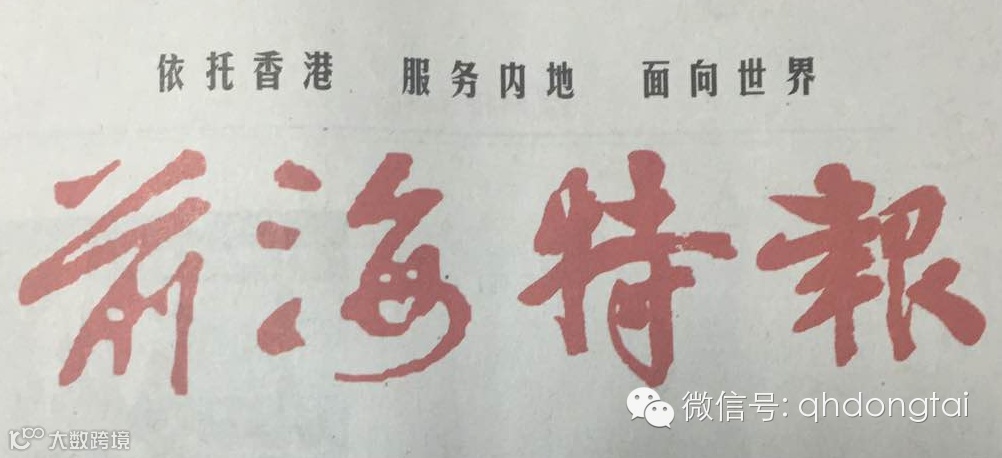 依托香港 服务内地 面向世界
前海特報
微信号: qhdongtai
大数跨境